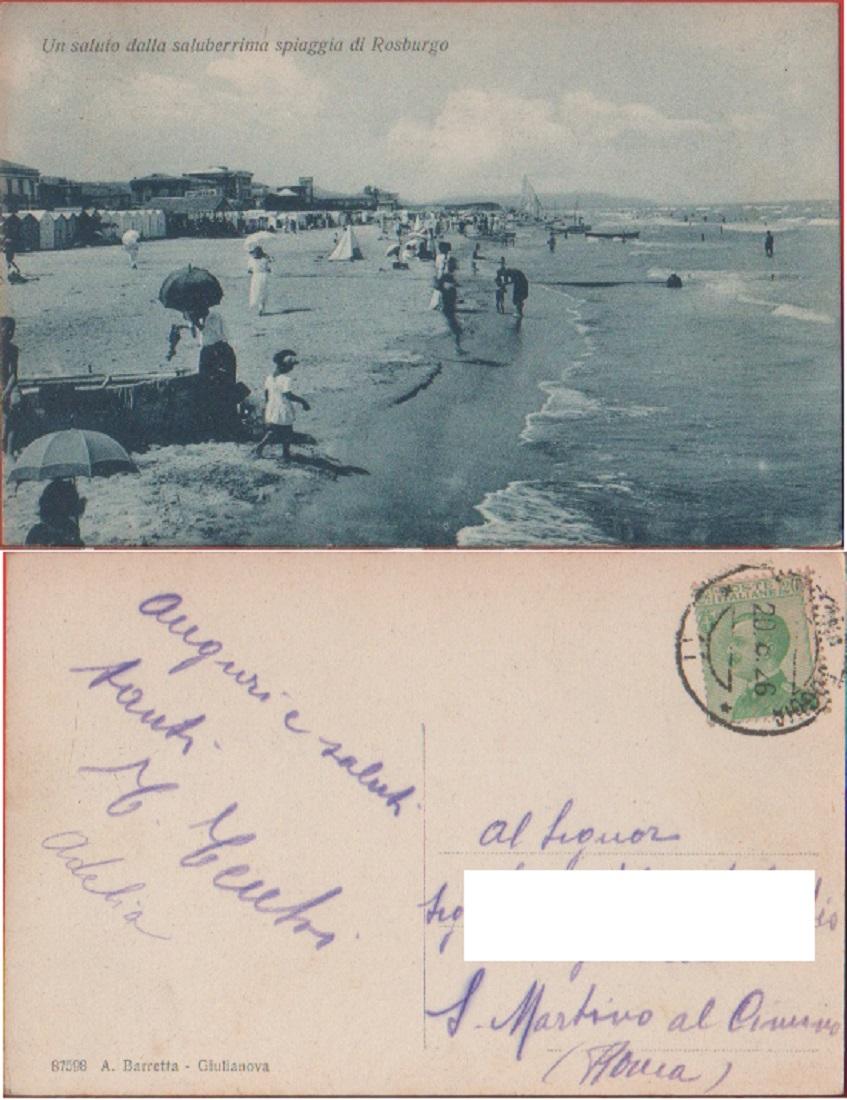 Un saluto dalla saluberrima spiaggia di Rosburgo
POSTE
ITALIANE
20.8.26
Auguri e saluti
tanti.
Adelia
Al Signor
S. Martino al Cimino
(Roma)
87598 A. Barretta - Giulianova